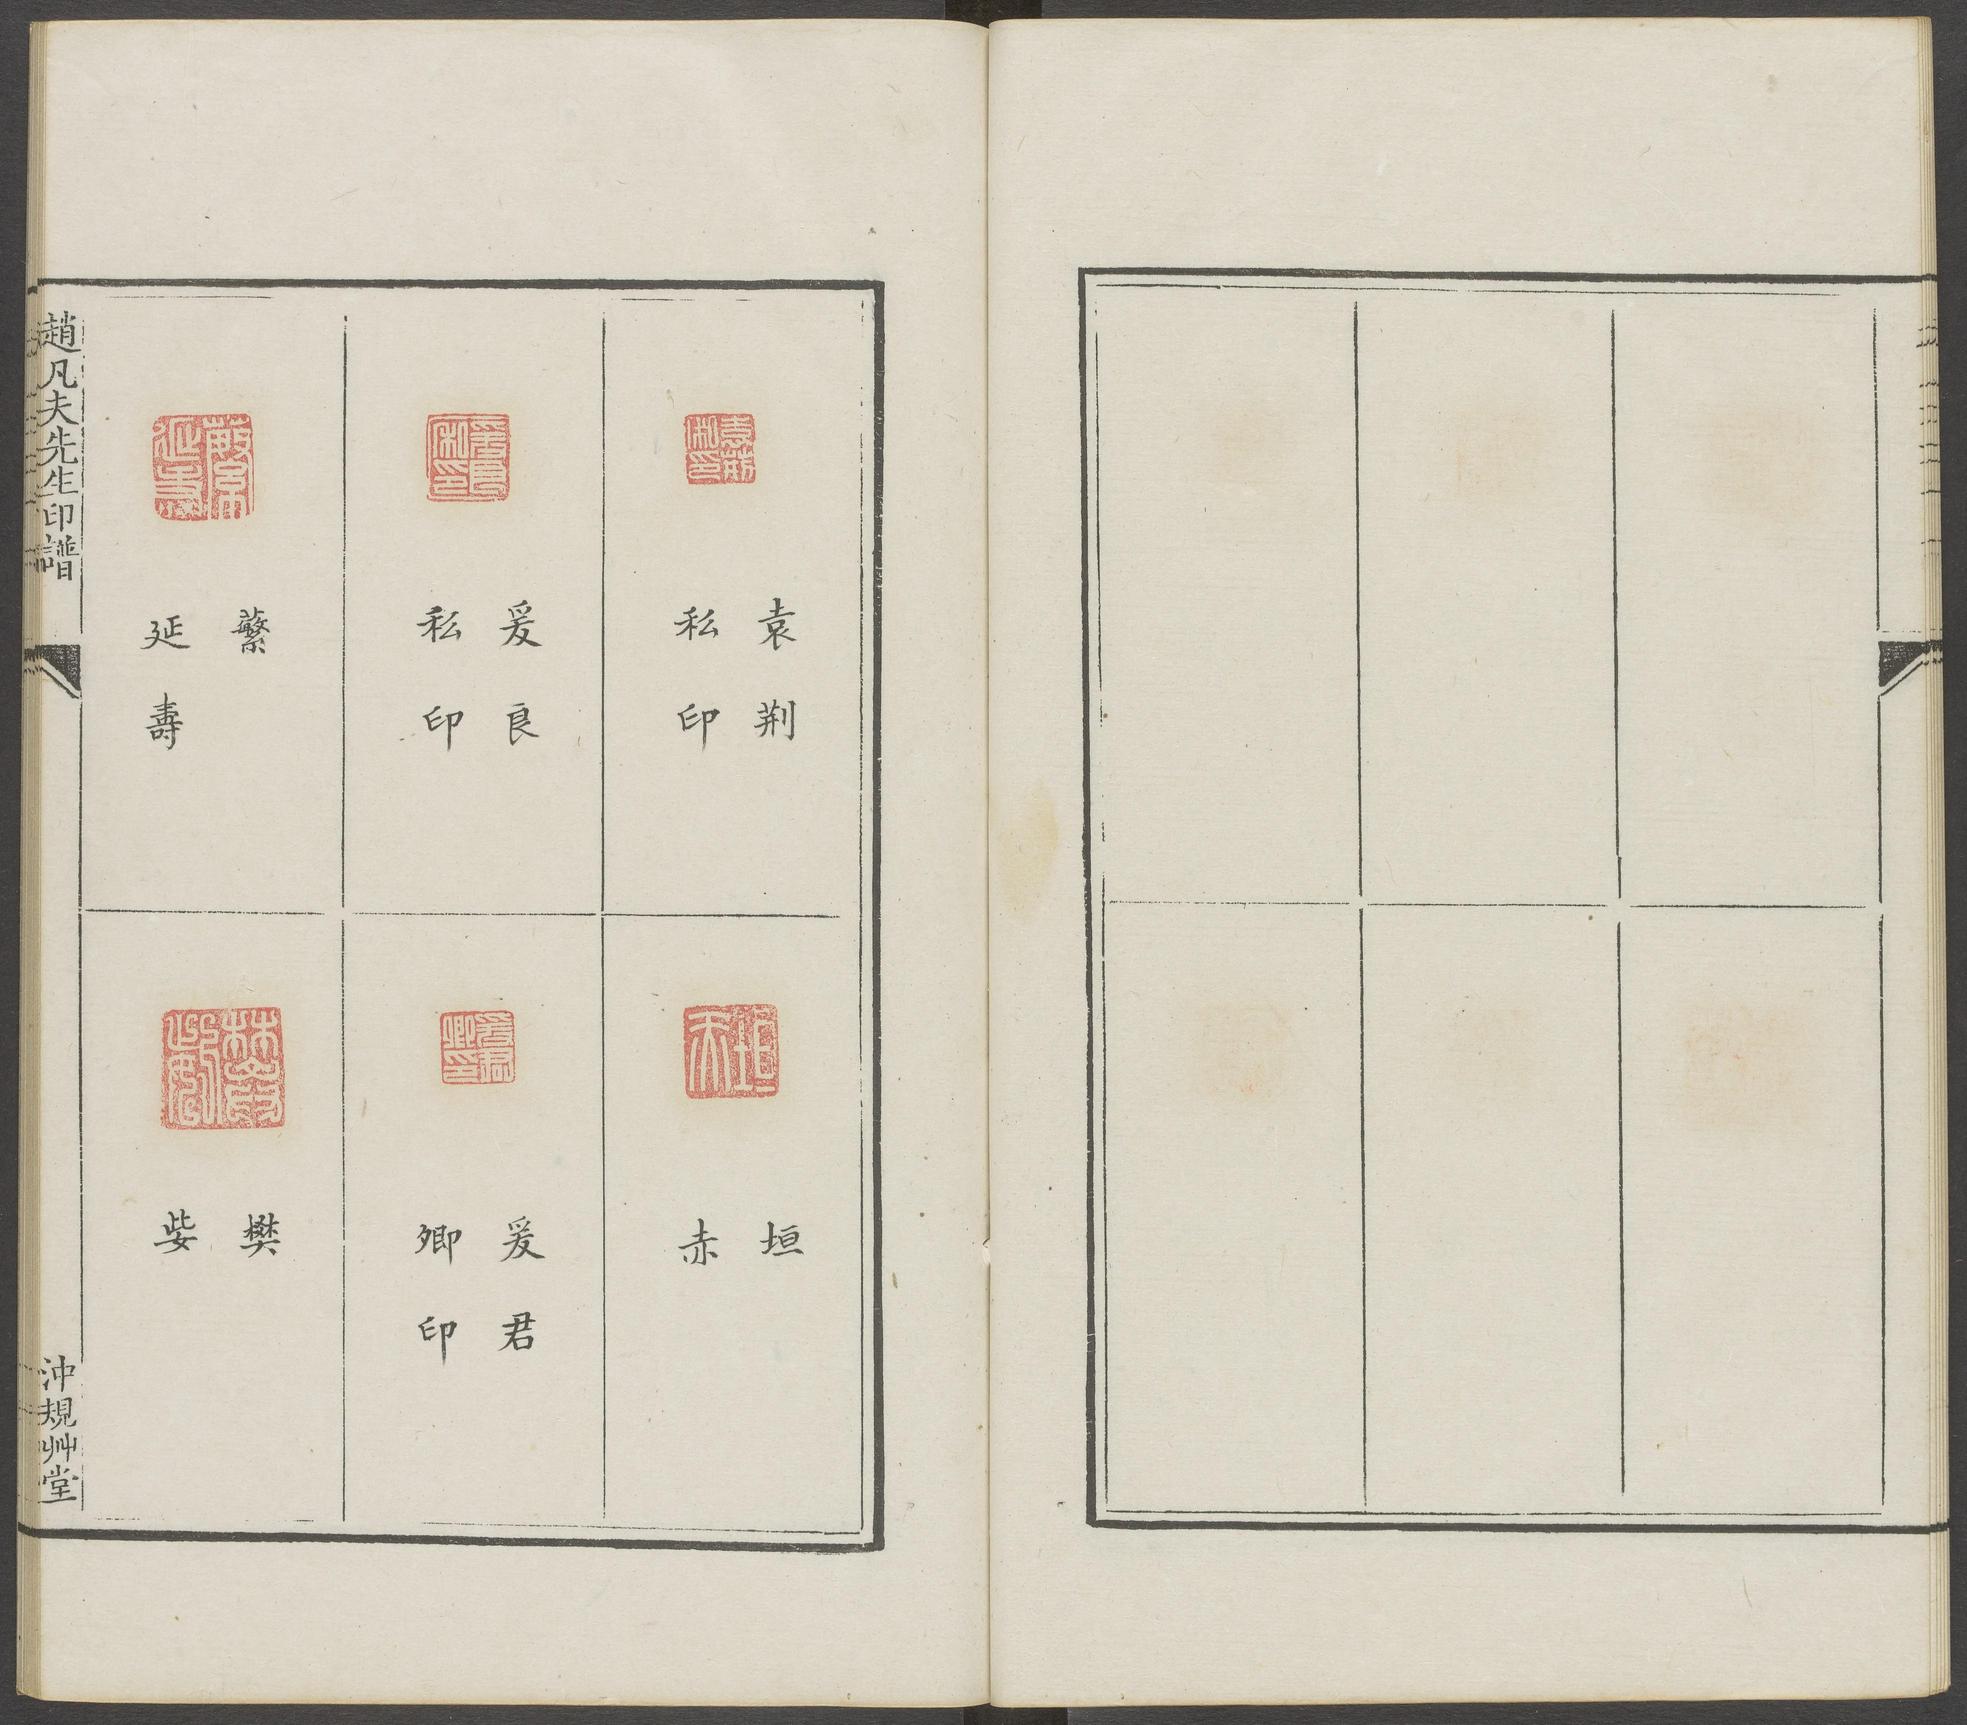 袁荆
私印
爰良
私印
蘩
延壽
垣
赤
爰君
卿印
樊
妛
趙凡夫先生印譜
沖規艸堂